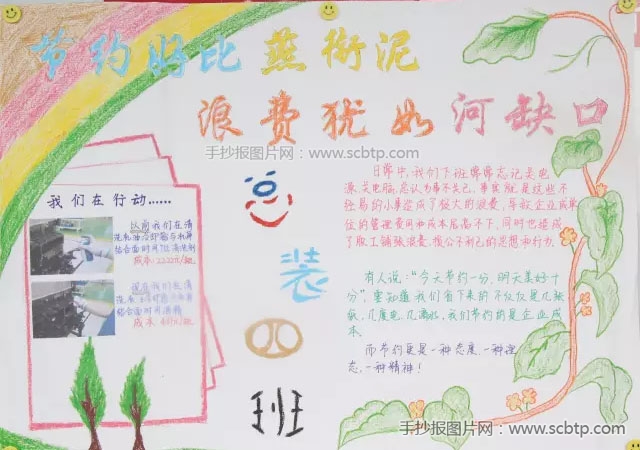 节约好比燕衔泥
浪费犹如河缺口
手抄报图片网:www.scbtp.com
总装四班
我们在行动……
以前我们在清
成本:22.22元/瓶
现在我们在清
日常中,我们下班常常忘记关电
源、关电脑,总认为事不关己,事实就是这些不
经意的小事造成了极大的浪费,导致企业成单
位的管理费用和成本居高不下,同时也造成
了职工铺张浪费、损公不利己的思想和行为.
有人说:“今天节约一分,明天美好十
分”.要知道我们省下来的不仅仅是几张
纸、几度电、几滴水,我们节约的是企业成
本.
而节约更是一种态度、一种理
念、一种精神!
手抄报图片网:www.scbtp.com